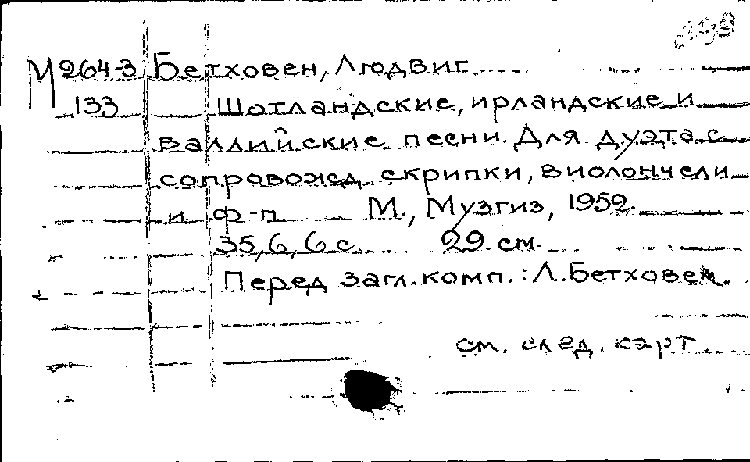 М264-3 Бетховен, Людвиг
133 Шотландские, ирландские и
валлийские песни. Для дуэта с
сопровожд. скрипки, виолончели
и ф-п М., Музгиз, 1952.
35, 6, 6 с. 29 см.
Перед загл. комп.: Л. Бетховен.
см. след. карт.